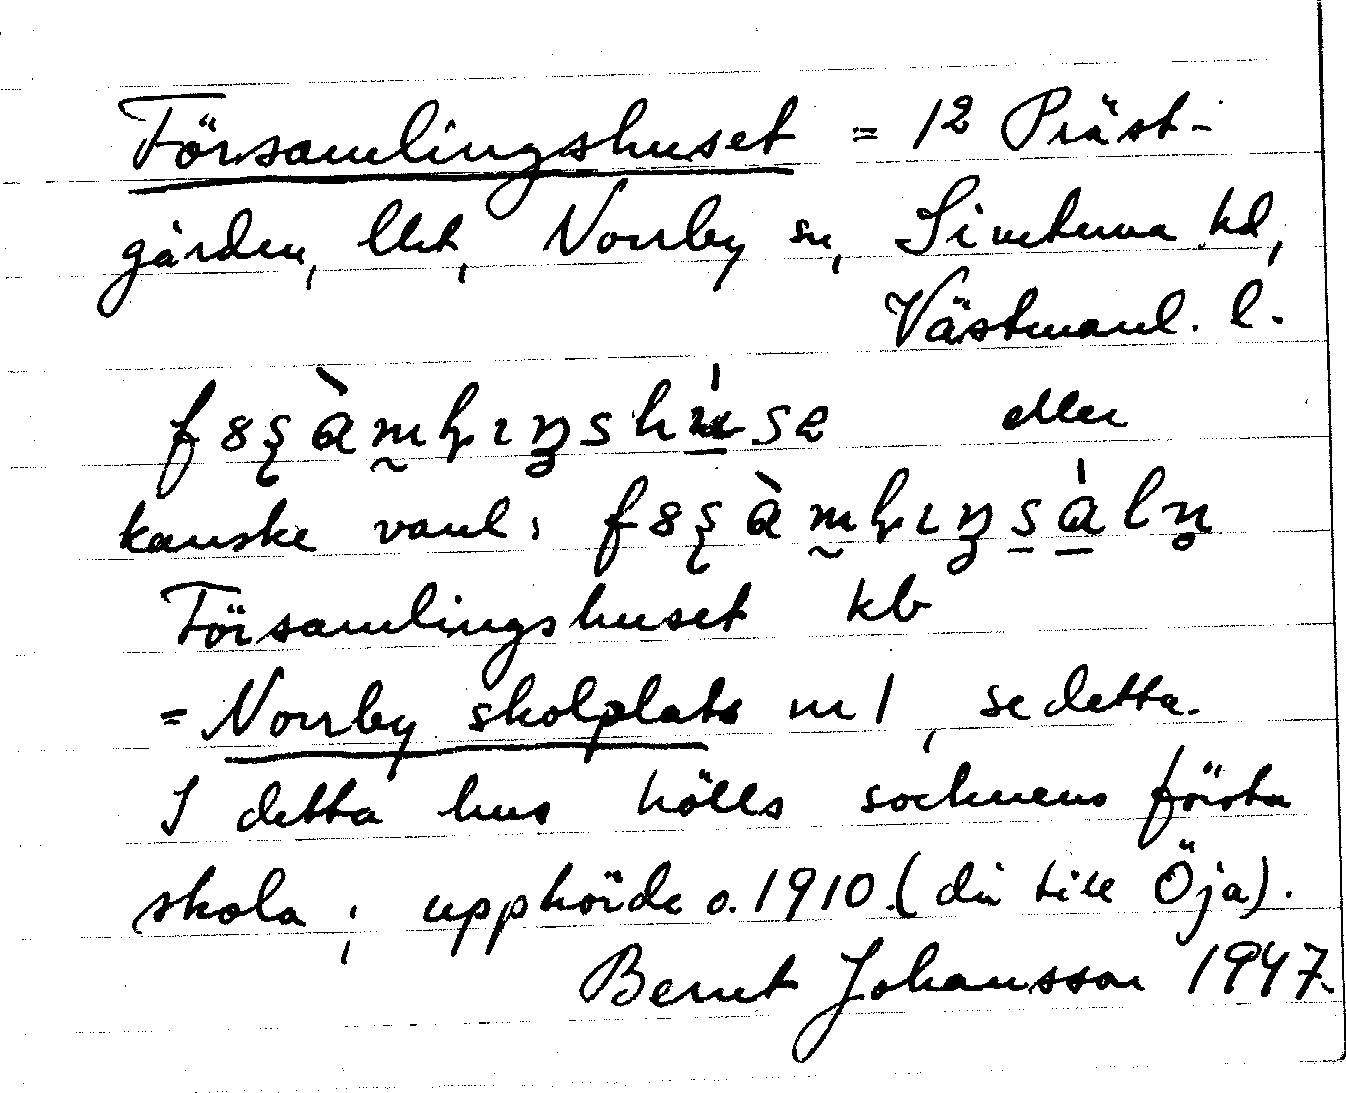 Församlingshuset = 12 Präst-
gården, lht, Norrby sn, Simtuna hd,
Västmanl. l.
eller
kanske vanl:
Församlingshuset kb
= Norrby skolplats m 1, se detta.
I detta hus hölls socknens första
skola; upphörde o. 1910 (då till Öja).
Bernt Johansson 1947.